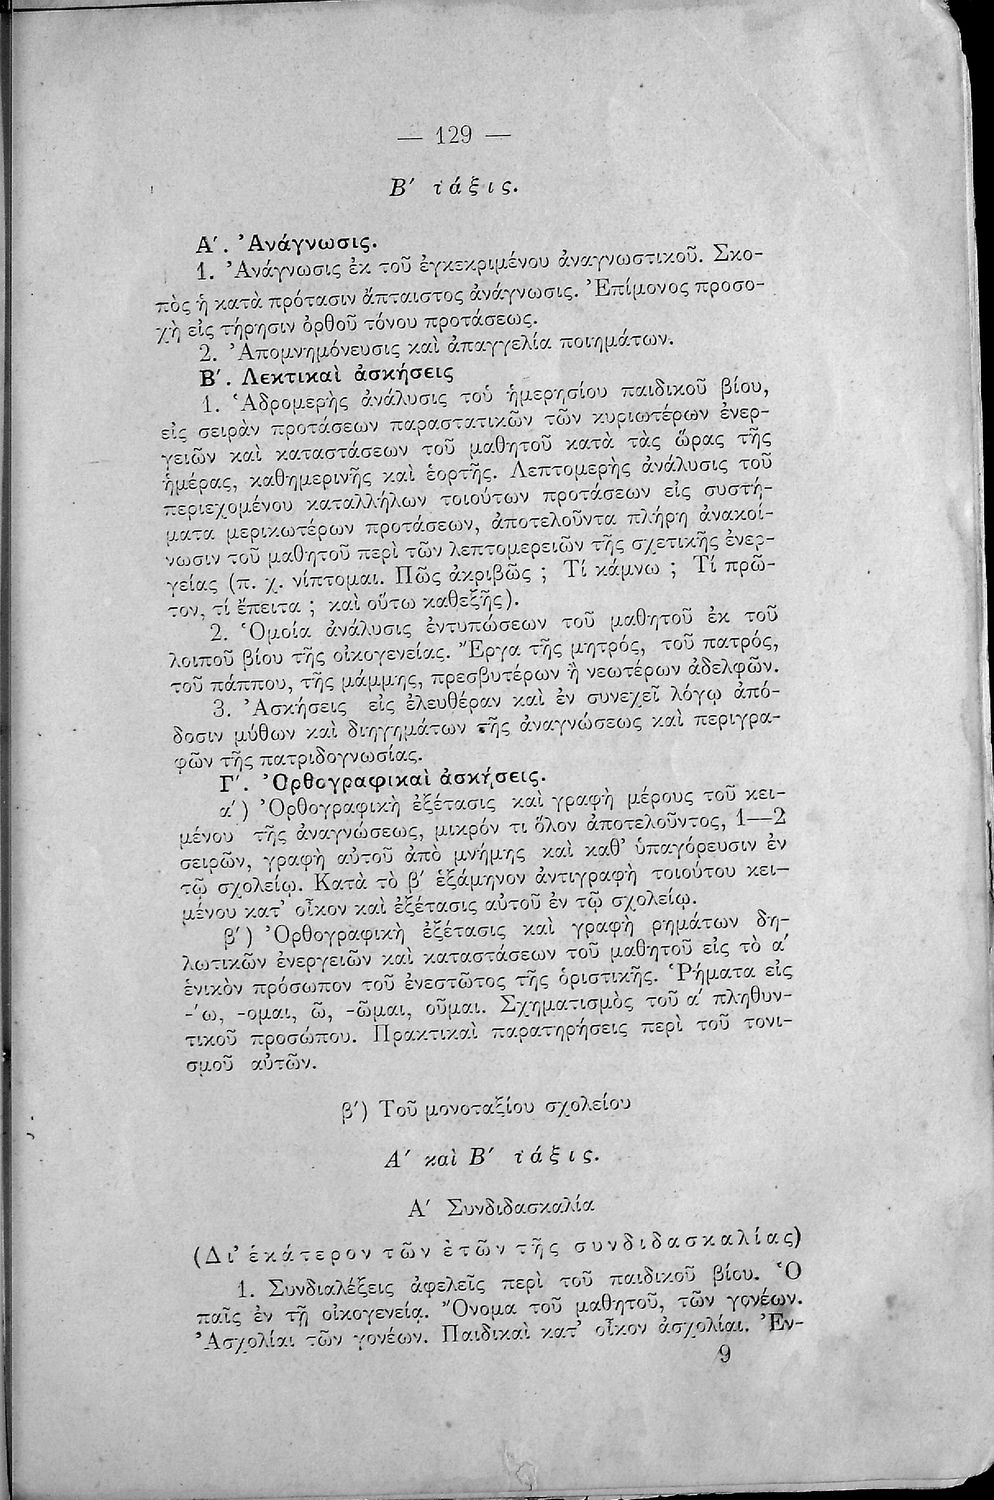 — 129 —
Β′ τάξις.
Α′. Ἀνάγνωσις.
1. Ἀνάγνωσις ἐκ τοῦ ἐγκεκριμένου ἀναγνωστικοῦ. Σκο-
πὸς ἡ κατὰ πρότασιν ἄπταιστος ἀνάγνωσις. Ἐπίμονος προσο-
χὴ εἰς τήρησιν ὀρθοῦ τόνου προτάσεως.
2. Ἀπομνημόνευσις καὶ ἀπαγγελία ποιημάτων.
Β′. Λεκτικαὶ ἀσκήσεις
1. Ἁδρομερὴς ἀνάλυσις τοῦ ἡμερησίου παιδικοῦ βίου,
εἰς σειρὰν προτάσεων παραστατικῶν τῶν κυριωτέρων ἐνερ-
γειῶν καὶ καταστάσεων τοῦ μαθητοῦ κατὰ τὰς ὥρας τῆς
ἡμέρας, καθημερινῆς καὶ ἑορτῆς. Λεπτομερὴς ἀνάλυσις τοῦ
περιεχομένου καταλλήλων τοιούτων προτάσεων εἰς συστή-
ματα μερικωτέρων προτάσεων, ἀποτελοῦντα πλήρη ἀνακοί-
νωσιν τοῦ μαθητοῦ περὶ τῶν λεπτομερειῶν τῆς σχετικῆς ἐνερ-
γείας (π. χ. νίπτομαι. Πῶς ἀκριβῶς ; Τί κάμνω ; Τί πρῶ-
τον, τί ἔπειτα ; καὶ οὕτω καθεξῆς).
2. Ὁμοία ἀνάλυσις ἐντυπώσεων τοῦ μαθητοῦ ἐκ τοῦ
λοιποῦ βίου τῆς οἰκογενείας. Ἔργα τῆς μητρός, τοῦ πατρός,
τοῦ πάππου, τῆς μάμμης, πρεσβυτέρων ἢ νεωτέρων ἀδελφῶν.
3. Ἀσκήσεις εἰς ἐλευθέραν καὶ ἐν συνεχεῖ λόγῳ ἀπό-
δοσιν μύθων καὶ διηγημάτων τῆς ἀναγνώσεως καὶ περιγρα-
φῶν τῆς πατριδογνωσίας.
Γ′. Ὀρθογραφικαὶ ἀσκήσεις.
α′) Ὀρθογραφικὴ ἐξέτασις καὶ γραφὴ μέρους τοῦ κει-
μένου τῆς ἀναγνώσεως, μικρόν τι ὅλον ἀποτελοῦντος, 1—2
σειρῶν, γραφὴ αὐτοῦ ἀπὸ μνήμης καὶ καθ’ ὑπαγόρευσιν ἐν
τῷ σχολείῳ. Κατὰ τὸ β′ ἑξάμηνον ἀντιγραφὴ τοιούτου κει-
μένου κατ’ οἶκον καὶ ἐξέτασις αὐτοῦ ἐν τῷ σχολείῳ.
β′) Ὀρθογραφικὴ ἐξέτασις καὶ γραφὴ ρημάτων δη-
λωτικῶν ἐνεργειῶν καὶ καταστάσεων τοῦ μαθητοῦ εἰς τὸ α′
ἑνικὸν πρόσωπον τοῦ ἐνεστῶτος τῆς ὁριστικῆς. Ῥήματα εἰς
-′ω, -ομαι, ῶ, -ῶμαι, οῦμαι. Σχηματισμὸς τοῦ α′ πληθυν-
τικοῦ προσώπου. Πρακτικαὶ παρατηρήσεις περὶ τοῦ τονι-
σμοῦ αὐτῶν.
β′) Τοῦ μονοταξίου σχολείου
Α′ καὶ Β′ τάξις.
Α′ Συνδιδασκαλία
(Δι’ ἑκάτερον τῶν ἐτῶν τῆς συνδιδασκαλίας)
1. Συνδιαλέξεις ἀφελεῖς περὶ τοῦ παιδικοῦ βίου. Ὁ
παῖς ἐν τῇ οἰκογενείᾳ. Ὄνομα τοῦ μαθητοῦ, τῶν γονέων.
Ἀσχολίαι τῶν γονέων. Παιδικαὶ κατ’ οἶκον ἀσχολίαι. Ἐν-
9